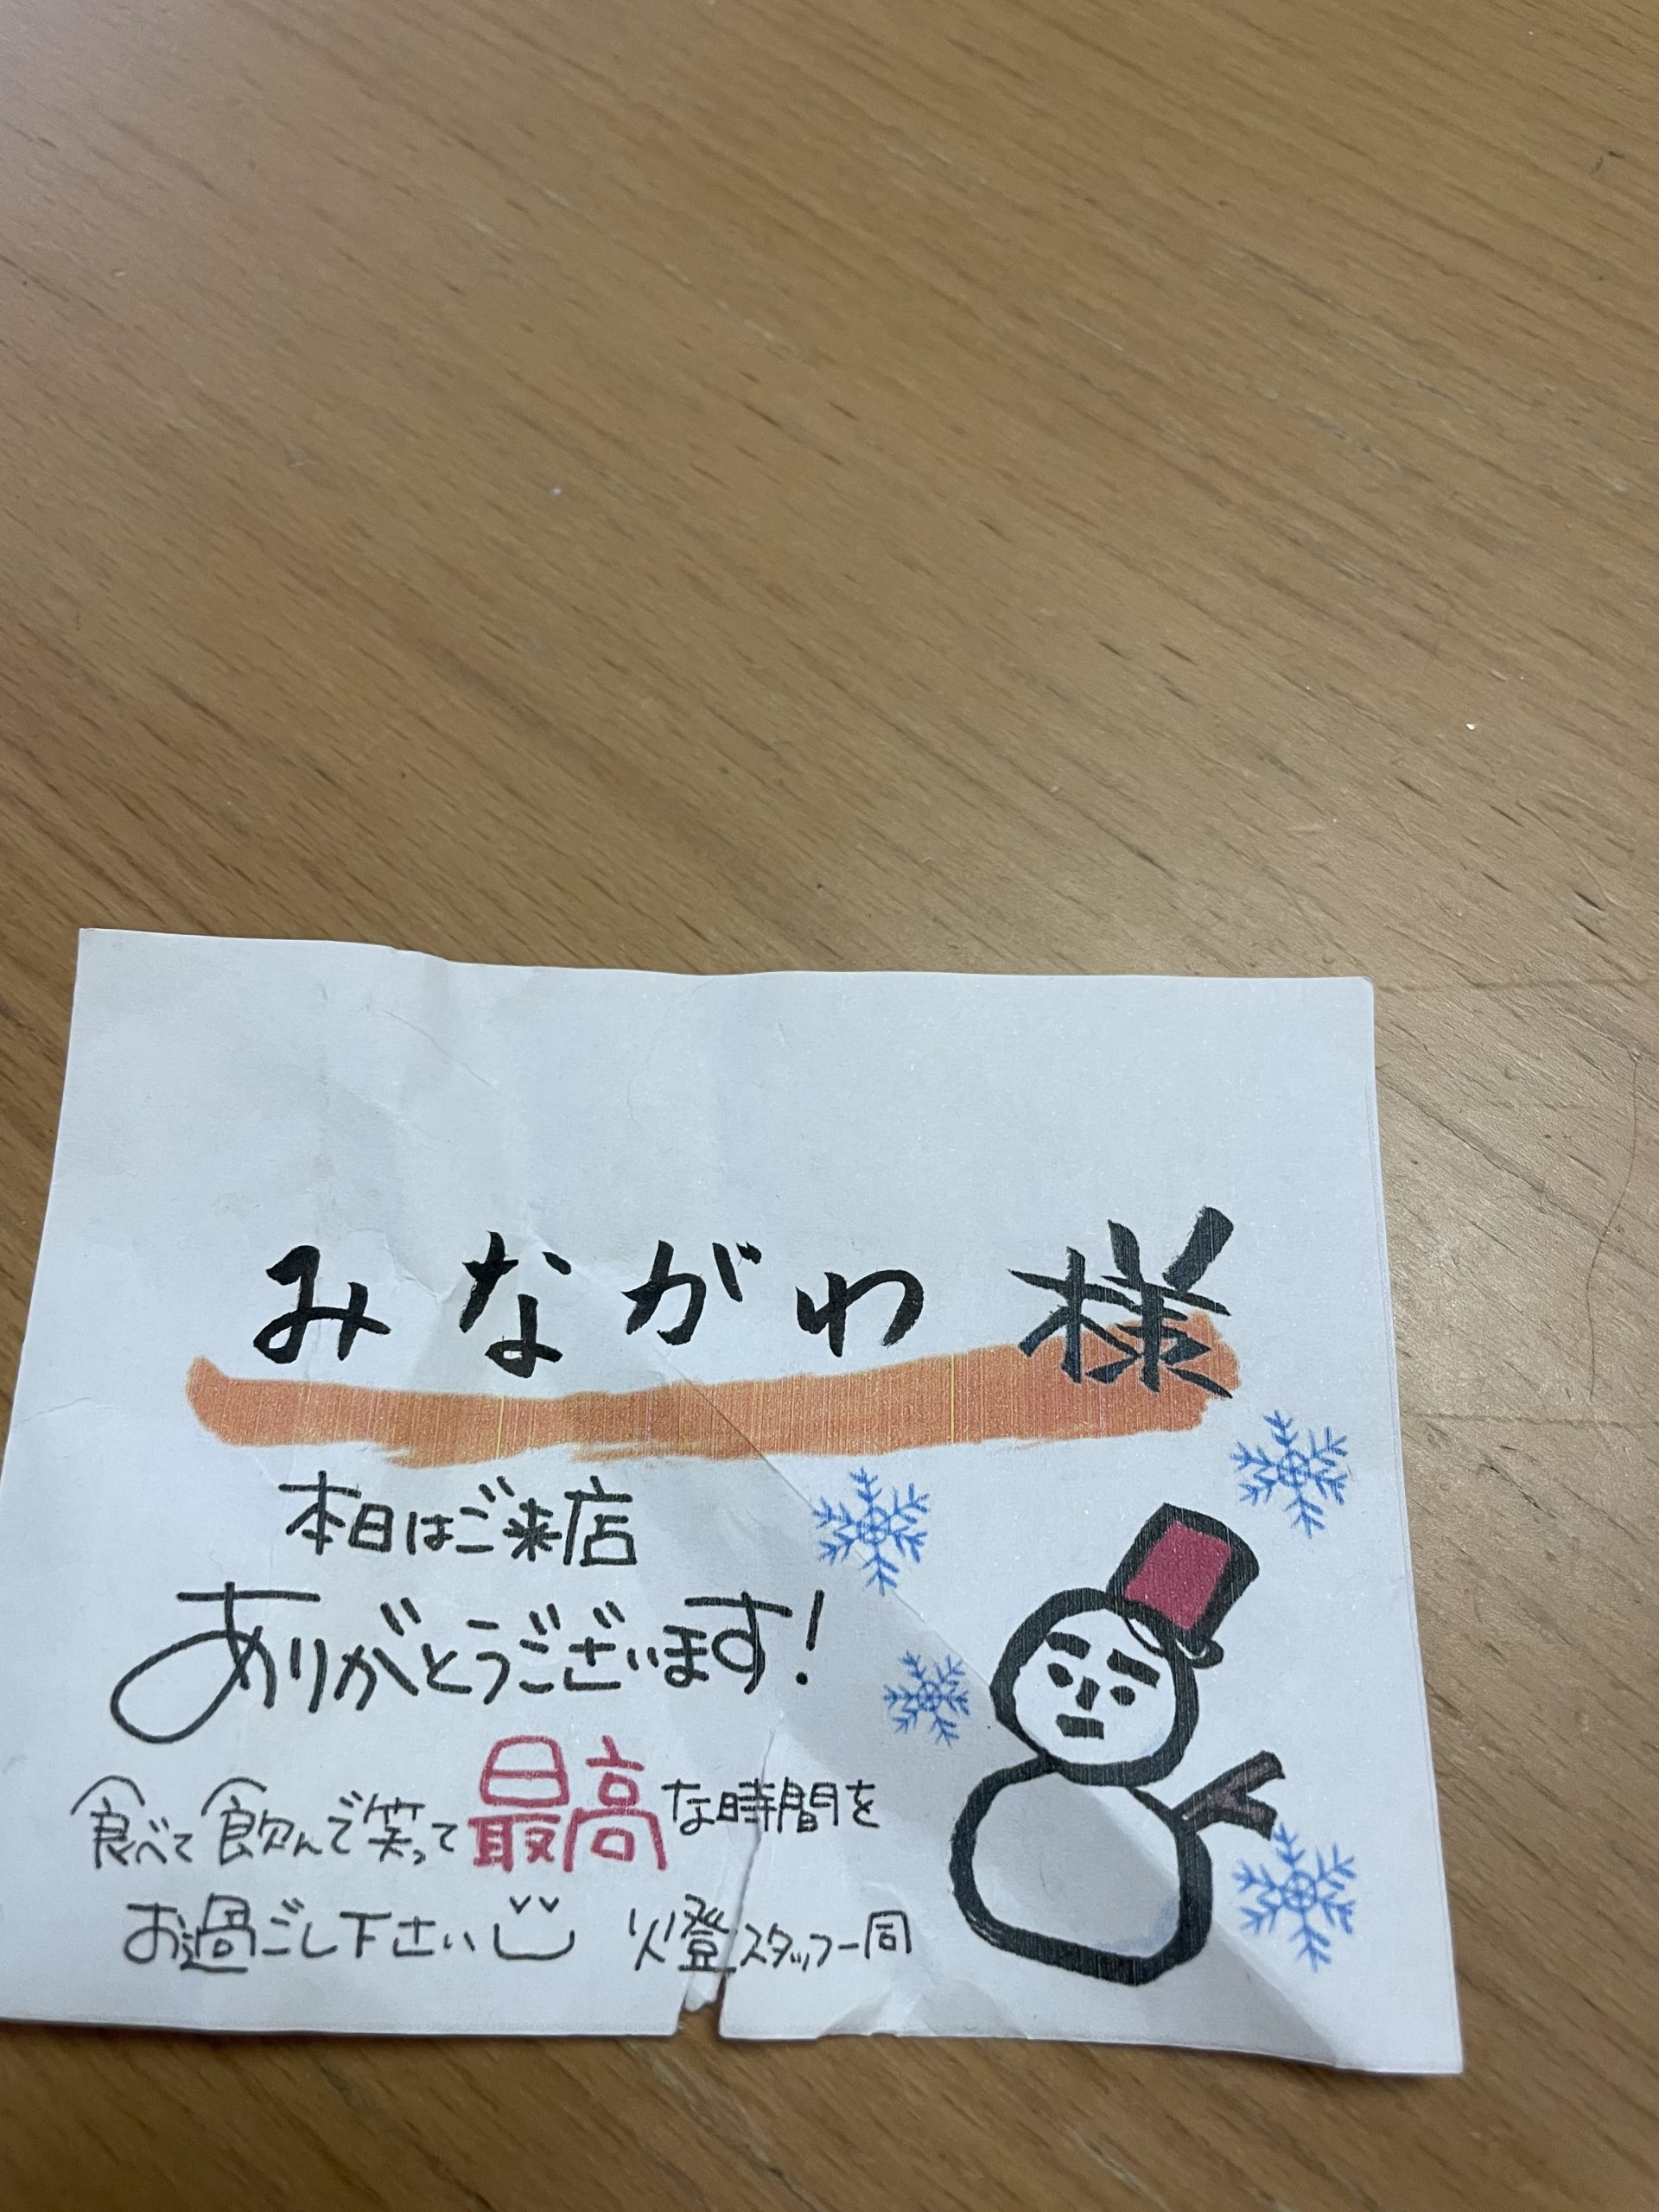 みながわ 様
本日はご来店
ありがとうございます!
食べて飲んで笑って最高な時間を
お過ごし下さい 燈スタッフ一同